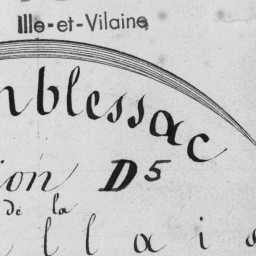 Ille-et-Vilaine
nblessac
ion D5
de la
llais